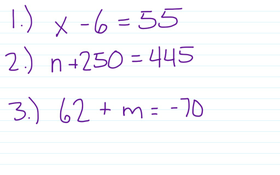 1.) x - 6 = 55
2.) n + 250 = 445
3.) 62 + m = -70